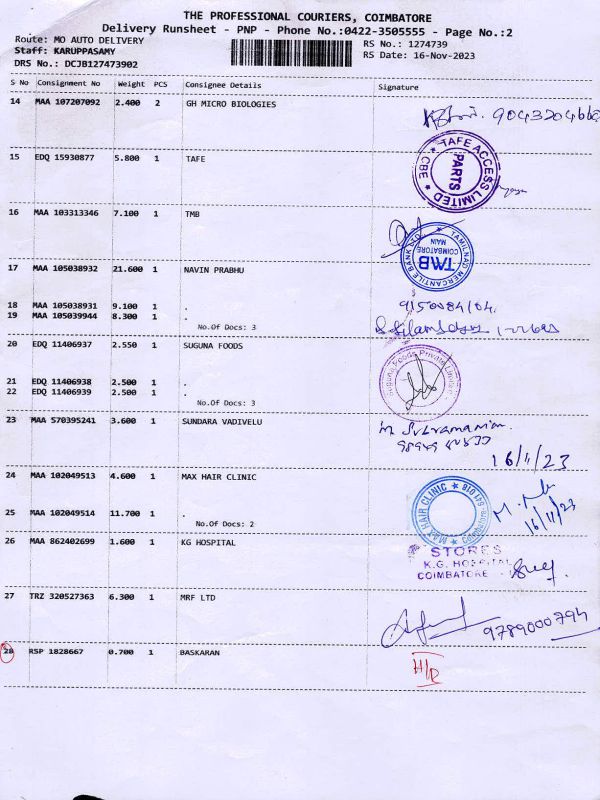 THE PROFESSIONAL COURIERS, COIMBATORE
Delivery Runsheet - PNP - Phone No.:0422-3505555 - Page No.:2
Route: MO AUTO DELIVERY
RS No.: 1274739
Staff: KARUPPASAMY
RS Date: 16-Nov-2023
DRS No.: DCJB127473902
S No Consignment No Weight PCS Consignee Details Signature
14 MAA 107207092 2.400 2 GH MICRO BIOLOGIES
15 EDQ 15930877 5.800 1 TAFE
TAFE ACCESS LIMITED
PARTS
★ CBE ★
16 MAA 103313346 7.100 1 TMB
TAMILNAD MERCANTILE BANK LTD
TMB
COIMBATORE
MAIN
17 MAA 105038932 21.600 1 NAVIN PRABHU
18 MAA 105038931 9.100 1 .
19 MAA 105039944 8.300 1 .
No.Of Docs: 3
20 EDQ 11406937 2.550 1 SUGUNA FOODS
Suguna Foods Private Limited
21 EDQ 11406938 2.500 1 .
22 EDQ 11406939 2.500 1 .
No.Of Docs: 3
23 MAA 570395241 3.600 1 SUNDARA VADIVELU
16/11/23
24 MAA 102049513 4.600 1 MAX HAIR CLINIC
★ MAX HAIR CLINIC ★
Coimbatore-641 018
16/11/23
25 MAA 102049514 11.700 1 .
No.Of Docs: 2
26 MAA 862402699 1.600 1 KG HOSPITAL
STORES
K.G. HOSPITAL
COIMBATORE
27 TRZ 320527363 6.300 1 MRF LTD
9789000794
28 RSP 1828667 0.700 1 BASKARAN
H/R